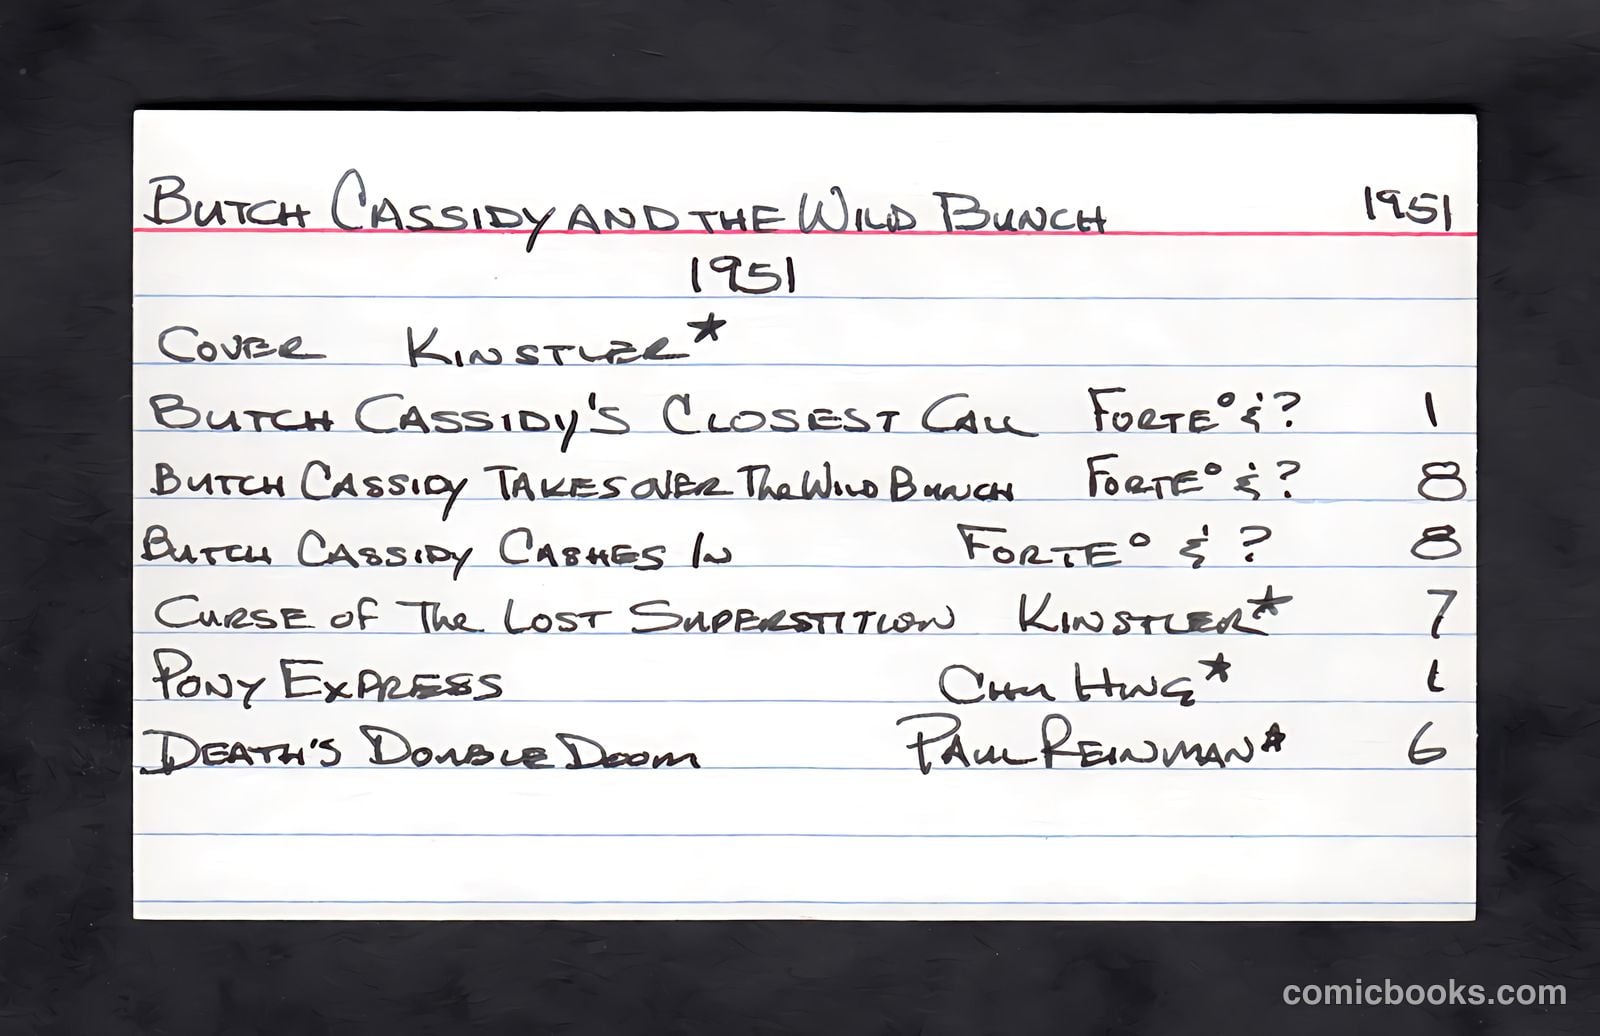 BUTCH CASSIDY AND THE WILD BUNCH 1951
1951
COVER KINSTLER*
BUTCH CASSIDY'S CLOSEST CALL FORTE° & ? 1
BUTCH CASSIDY TAKES OVER The WILD BUNCH FORTE° & ? 8
BUTCH CASSIDY CASHES IN FORTE° & ? 8
CURSE OF The LOST SUPERSTITION KINSTLER* 7
PONY EXPRESS CHU HING* 1
DEATH'S DOUBLE DOOM PAUL REINMAN* 6
comicbooks.com